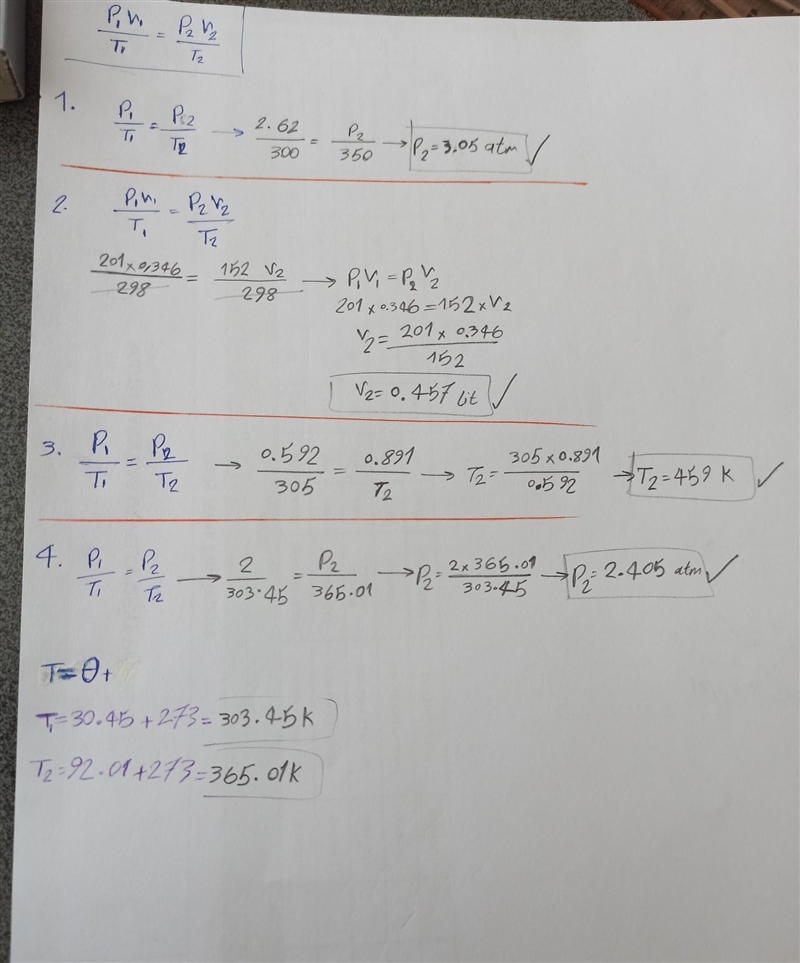 P₁V₁/T₁ = P₂V₂/T₂
1. P₁/T₁ = P₂/T₂ → 2.62/300 = P₂/350 → P₂ = 3.05 atm ✓
2. P₁V₁/T₁ = P₂V₂/T₂
201×0.346/298 = 152 V₂/298 → P₁V₁ = P₂V₂
201×0.346 = 152×V₂
V₂ = 201×0.346/152
V₂ = 0.457 lit ✓
3. P₁/T₁ = P₂/T₂ → 0.592/305 = 0.891/T₂ → T₂ = 305×0.891/0.592 → T₂ = 459 K ✓
4. P₁/T₁ = P₂/T₂ → 2/303.45 = P₂/365.01 → P₂ = 2×365.01/303.45 → P₂ = 2.405 atm ✓
T = θ +
T₁ = 30.45 + 273 = 303.45 K
T₂ = 92.01 + 273 = 365.01 K